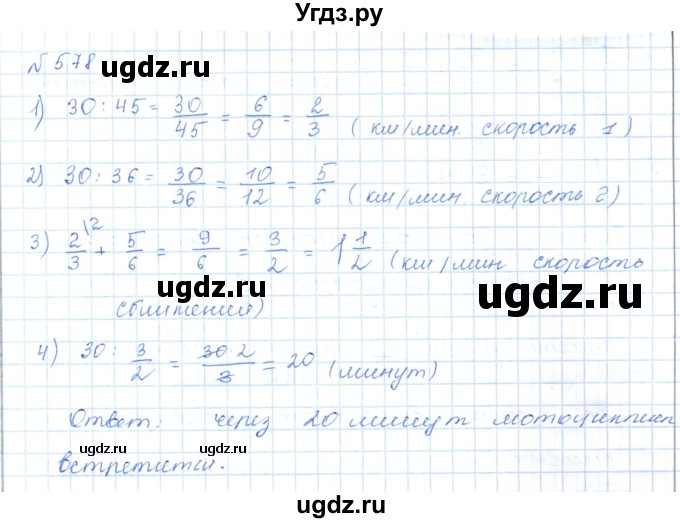 Угдз.ру
№ 578
ugdz.ru
1) 30 : 45 = 30/45 = 6/9 = 2/3 (км/мин. скорость 1)
2) 30 : 36 = 30/36 = 10/12 = 5/6 (км/мин. скорость 2)
3) 2/3 \2 + 5/6 = 9/6 = 3/2 = 1 1/2 (км/мин скорость
ugdz.ru
сближения)
4) 30 : 3/2 = 30·2/3 = 20 (минут)
Ответ: через 20 минут мотоциклист
ugdz.ru ugdz.ru
встретятся.
ugdz.ru